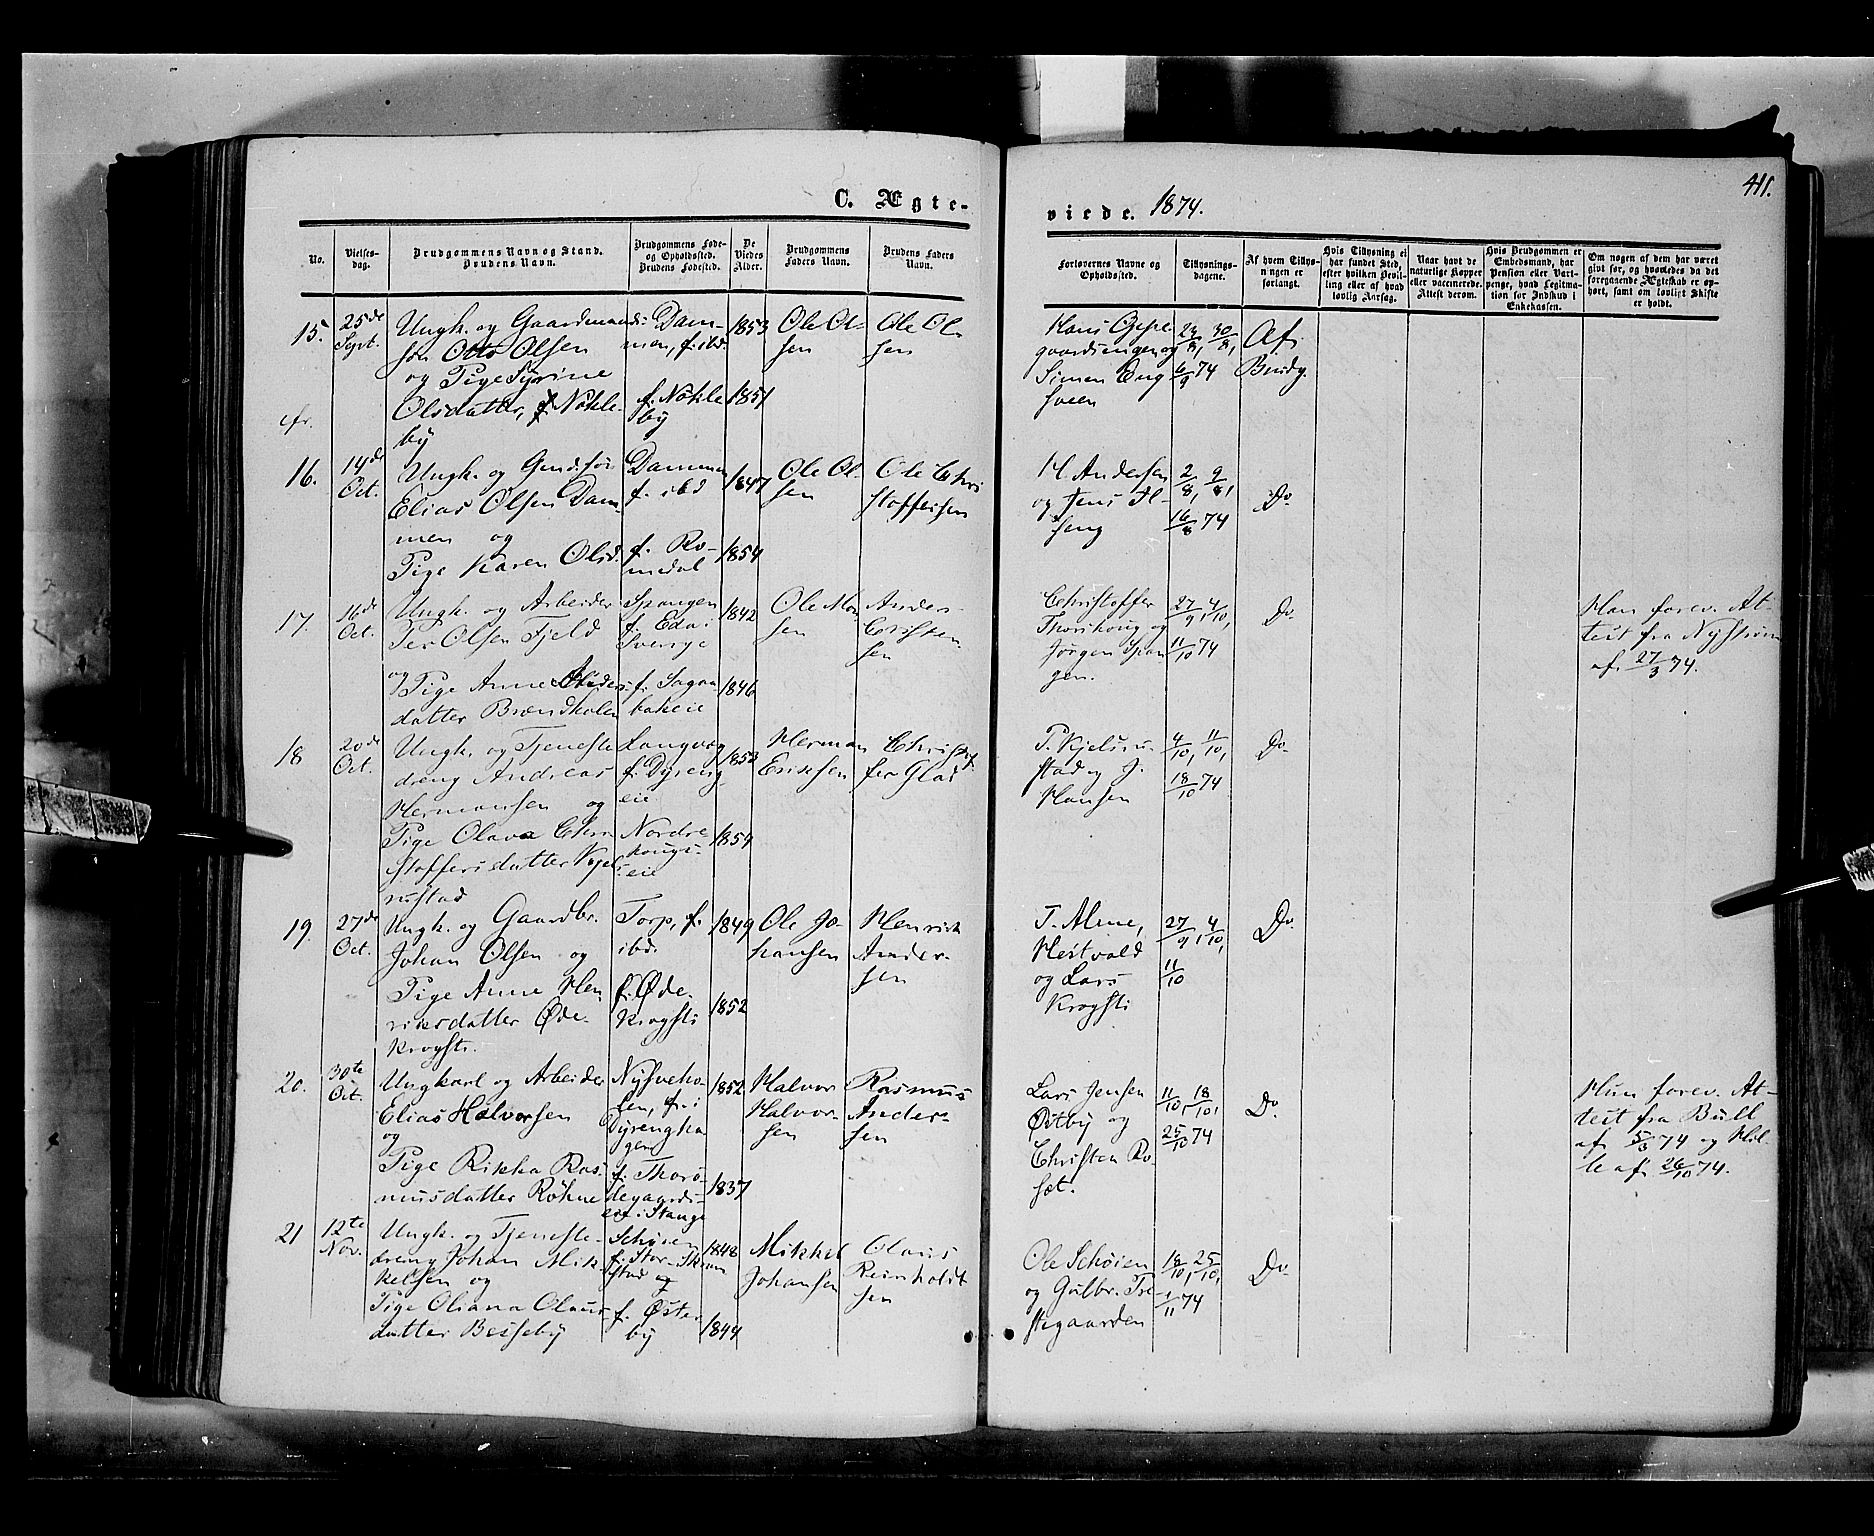 C. Ægte-
viede. 1874.
411.
No.
Vielses-
dag.
Brudgommens Navn og Stand.
Brudens Navn.
Brudgommens Føde-
og Opholdssted.
Brudens Fødested.
De
Viedes
Alder.
Brudgommens
Faders Navn.
Brudens Faders
Navn.
Forlovernes Navne og
Opholdssted.
Tillysnings-
dagene.
Af hvem Tillys-
ningen er
forlangt.
Hvis Tillysning ei
har fundet Sted,
efter hvilken Bevil-
ling eller af hvad
lovlig Aarsag.
Naar havt de
naturlige Kopper
eller vaccinerede.
Attest derom.
Hvis Brudgommen er
Embedsmand, har
Pension eller Vart-
penge, hvad Legitima-
tion for Indskud i
Enkekassen.
Om nogen af dem har været
gift før, og hvorledes da det
foregaaende Ægteskab er op-
hørt, samt om lovligt Skifte
er holdt.
15.
25de
Sept.
Ungk. og Gaardmands-
søn Otto Olsen
og Pige Syrine
Olsdatter, Nökle-
by
Dam-
men, f. ibd.
f. Nökle
by
1853
1851
Ole Ol-
sen
Ole Ol-
sen
Hans
gaardsengen og
Simen Eng
sveen
23/8, 30/8,
6/9 74
Af
Brudg.
16.
14de
Oct.
Ungk. og
Elias Olsen Dam
men og
Pige Karen Olsd.
Dammen
f. ibd
f. Ro-
medal
1847
1854
Ole Ol-
sen
Ole Chri
stoffersen
H. Andersen
og Jens Al-
seng
2/8, 9/8,
16/8 74
Do.
17.
16de
Oct.
Ungk. og Arbeider
Per Olsen Fjeld
og
Pige Anne Anders-
datter Brændholen
Spangen
f. Eda i
Sverrge
f. Sagaa
bakeie
1842
1846
Ole Mon
sen
Anders
Cristen
sen
Christoffer
Thorshoug og
Jørgen Span
gen.
27/9, 4/10,
11/10 74
Do.
Han forev. At-
test fra Nystrøm
af 27/3 74.
18
20de
Oct.
Ungk. og Tjeneste
dreng Andreas
Hermansen og
Pige Olava Chri
stoffersdatter Kjels
rustad
Langveg
f. Dyreng
eie
Nordre
hougs-
eie
1853
1854
Herman
Eriksen
Christof
fer Glad
P. Kjelsru
stad og J.
Hansen
4/10, 11/10,
18/10 74
Do.
19.
27de
Oct.
Ungk. og Gaardbr.
Johan Olsen og
Pige Anne Hen
riksdatter Øde-
krogsti.
Torp, f.
ibd.
f. Øde-
krogsti
1849
1852
Ole Jo-
hansen
Henrik
Ander-
sen
T. Alme,
Hestvold
og Lars
Krogsti
27/9, 4/10,
11/10
Do.
20.
30te
Oct.
Ungkarl og Arbeider
Elias Halvorsen
og
Pige Rikka Ras
musdatter Röhne
Nysveho-
len, f. i
Dyrengha
gen
f. Thorø-
degaards-
eie i Stange
1852
1837
Halvor
Halvor-
sen
Rasmus
Ander-
sen
Lars Jensen
Østby og
Christen Ro-
set.
11/10, 18/10,
25/10 74
Do.
Hun forev. At-
test fra Bull
af 5/3 74 og Hol-
te af 26/10 74.
21
12te
Nov.
Ungk. og Tjeneste-
dreng Johan Mik
kelsen og
Pige Oliana Olaus-
datter Besseby
Schøien
f. Stor-Skram
stad og
f. Øste-
by
1848
1844
Mikkel
Johansen
Olaus
Reinholdt
sen
Ole Schøien
og Gulbr. Tre
stegaarden
18/10, 25/10,
1/11 74
Do.